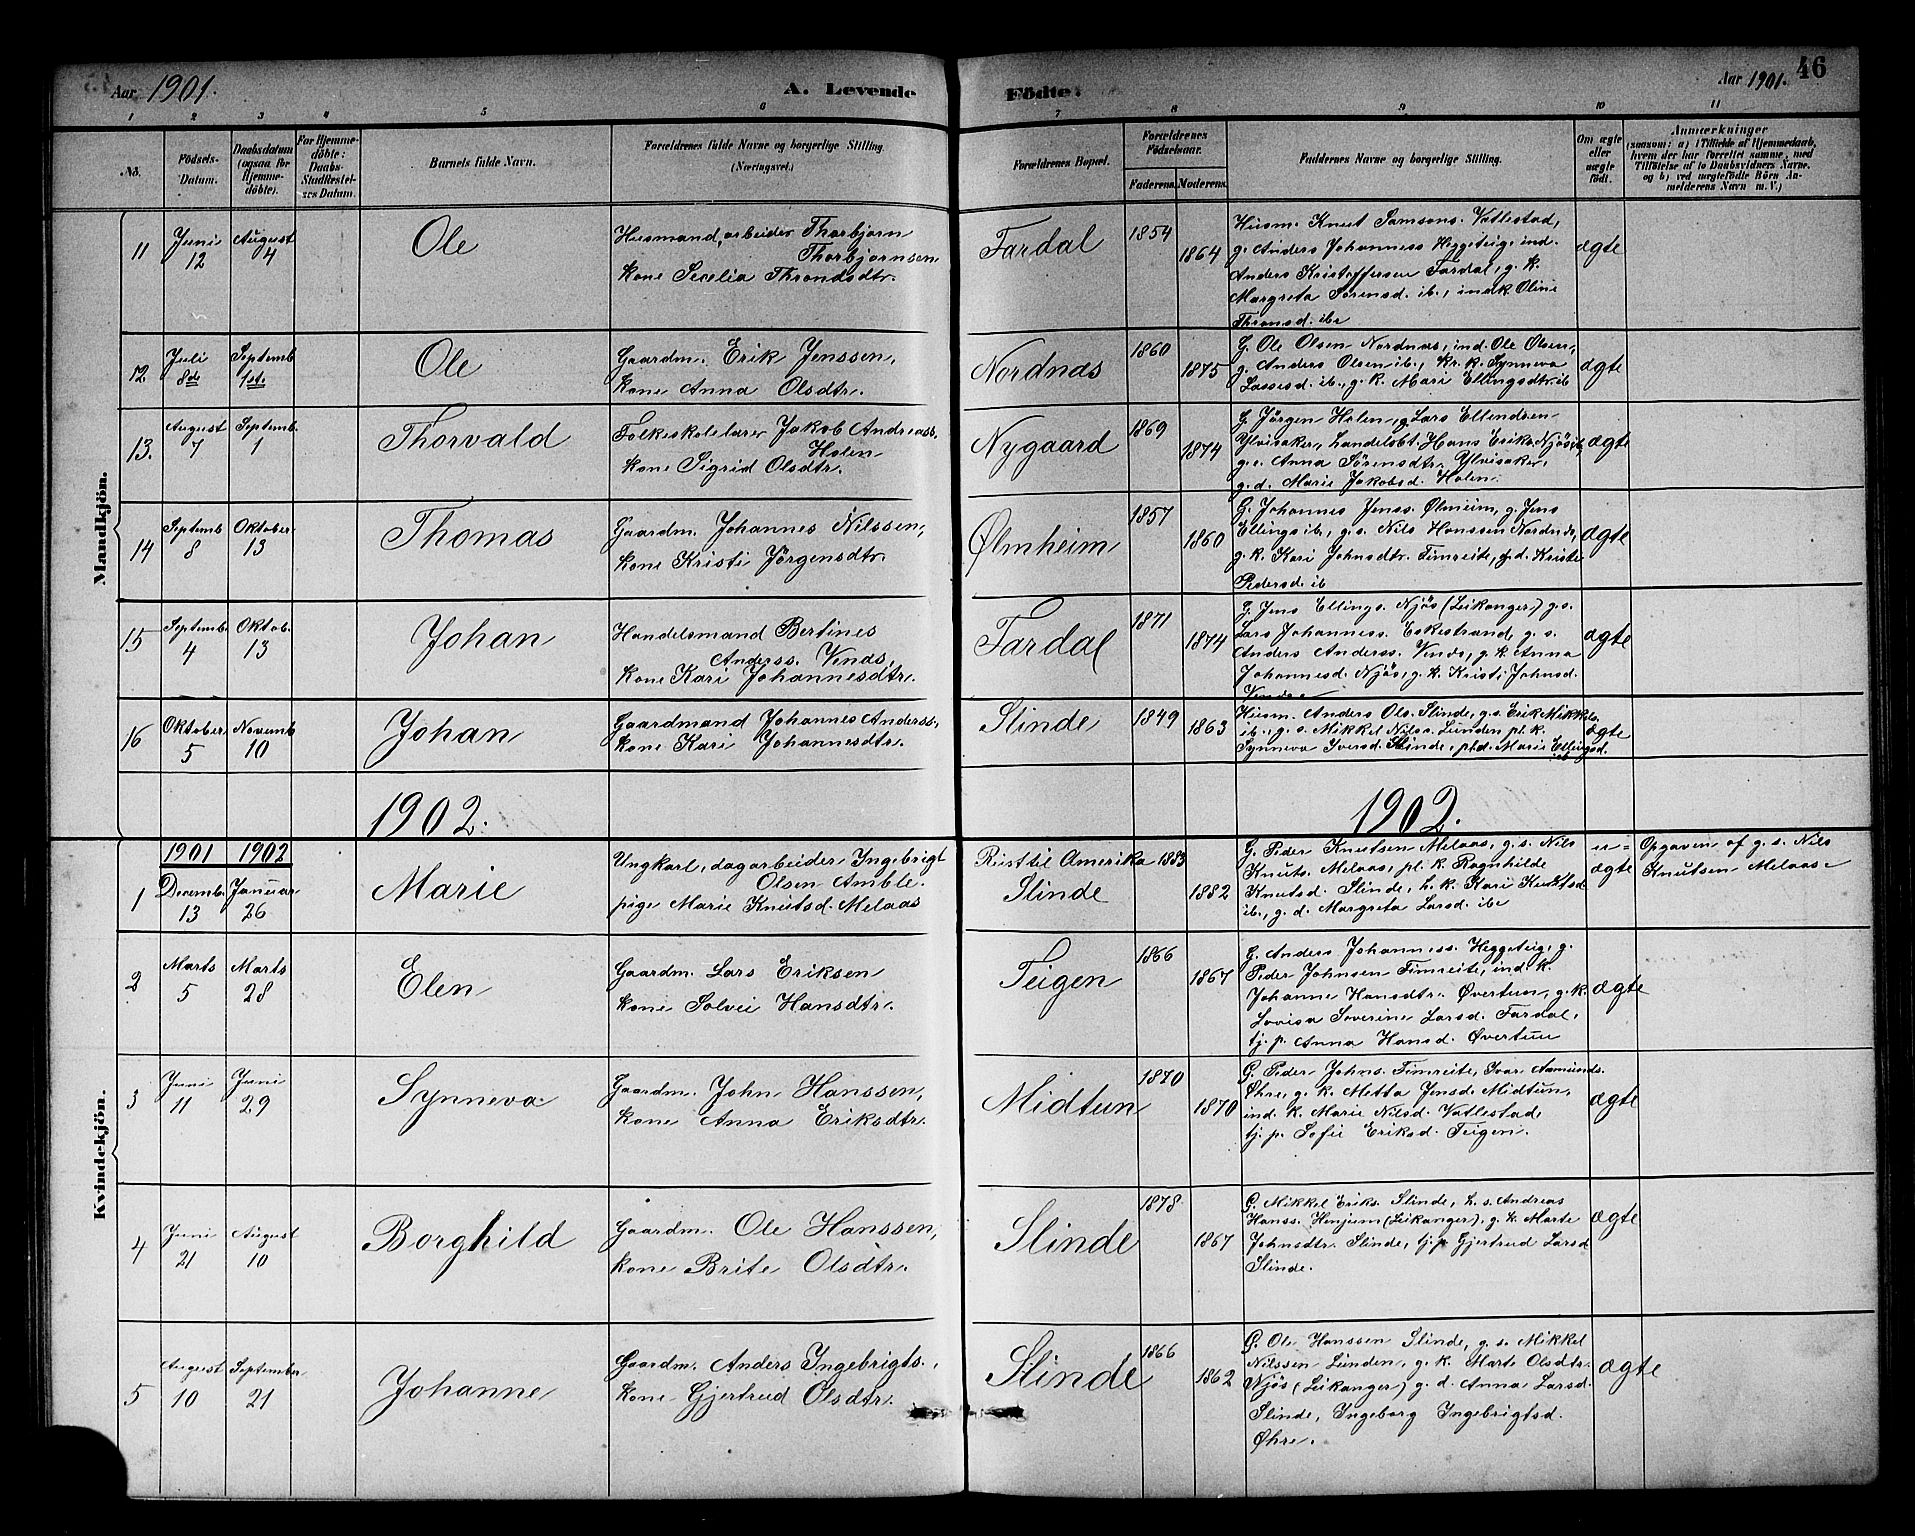 Aar 1901.
A. Levende
Födte.
Aar 1901.
46
1
2
3
4
5
6
7
8
9
10
11
No.
Födsels-
Datum.
Daabsdatum
(ogsaa for
Hjemme-
döbte).
For Hjemme-
döbte:
Daabs-
Stadfæstel-
ses Datum.
Barnets fulde Navn.
Forældrenes fulde Navne og borgerlige Stilling.
(Næringsvei.)
Forældrenes Bopæl.
Forældrenes
Födselsaar.
Faderens.
Moderens.
Faddernes Navne og borgerlige Stilling.
Om ægte
eller
uægte
födt.
Anmærkninger
(saasom: a) i Tilfælde af Hjemmedaab,
hvem der har forrettet samme, med
Tilföielse af to Daabsvidners Navne.
og b) ved uægtefödte Börn An-
melderens Navn m. V.)
Mandkjön.
11
Juni
12
August
4
Ole
Husmand, arbeider Thorbjørn
Thorbjørnsen
kone Secelia Throndsdtr.
Fardal
1854
1864
Husm. Knut Samsons. Vatlestad,
g. Anders Johanness Heggeteig, ind.
Anders Kristoffersen Fardal, g. k.
Margreta Sørensd. ib., ind.k. Oline
Thronsd. ib.
ægte
12
Juli
8de
Septemb.
1st.
Ole
Gaardm. Erik Jenssen,
kone Anna Olsdtr.
Nordnæs
1860
1875
G. Ole Olsen Nordnæs, ind. Ole Olsen,
g. Anders Olsen ib., kr. k. Synneva
Lassesd. ib., g. k. Mari Ellingsdtr. ib
ægte
13.
August
7
Septemb.
1
Thorvald
Folkeskolelærer Jakob Andreass.
Holen
kone Sigrid Olsdtr.
Nygaard
1869
1874
G. Jørgen Holen, g. Lars Ellendsen
Ylvisaker, Landelsbt. Hans Eriks. Njøs ib,
g. e. Anna Sørensdtr. Ylvisaker,
g. d. Marie Jakobsd. Holen.
ægte
14
Septemb
8
Oktober
13
Thomas
Gaardm. Johannes Nilssen,
kone Kristi Jørgensdtr.
Ølmheim
1857
1860
G. Johannes Jenss. Ølmheim, g. Jens
Ellings ib., g. s. Nils Hanssen Nordnæs,
g. k. Kari Johnsdtr. Fimreite, g. d. Kristi
Pedersd. ib
ægte
15
Septemb.
4
Oktob.
13
Johan
Handelsmand Bertines
Anderss. Vends,
kone Kari Johannesdtr.
Fardal
1871
1874
G. Jens Ellings. Njøs (Leikanger) g. s.
Lars Johanness. Eskestrand g. s.
Anders Anderss. Vends, g. k. Anna
Johannesd. Njøs, g. k. Kristi Johnsd.
ægte
16
Oktober
5
Novemb
10
Johan
Gaardmand Johannes Anderss.,
kone Kari Johannesdtr.
Slinde
1849
1863
Husm. Anders Ols. Slinde, g. s. Erik Mikkels.
ib., g. s. Mikkel Nilss. Lunden pl. k.
Synneva Iversd. Slinde, pl. d. Marie Ellingsd.
ib
ægte
1902.
1902.
Kvindekjön.
1901
1902
1
Decemb.
13
Januar
26
Marie
Ungkarl, dagarbeider Ingebrigt
Olsen Amble.
pige Marie Knutsd. Melaas
Reist til Amerika
Slinde
1883
1882
G. Peder Knutsen Melaas, g. s. Nils
Knuts. Melaas, pl. k. Ragnhilde
Knutsd. Slinde, h. k. Kari Knutsd
ib., g. d. Margreta Larsd. ib.
u=
ægte
Opgaven af g. s. Nils
Knutsen Melaas
2
Marts
5
Marts
28
Elen
Gaardm. Lars Eriksen
kone Solvei Hansdtr.
Teigen
1866
1867
G. Anders Johanness. Heggeteig, g.
Peder Johnsen Fimreite, ind. k.
Johanne Hansdtr. Øvertun, g. k.
Lovisa Soverine Larsd. Fardal,
tj. p. Anna Hansd. Øvertun
ægte
3
Juni
11
Juni
29
Synneva
Gaardm. John Hanssen,
kone Anna Eriksdtr.
Midtun
1870
1870
G. Peder Johns. Fimreite, Ivar Aamunds.
Øhre, g. k. Metta Jensd. Midtun,
ind. k. Marie Nilsd. Vatlestad,
tj. p. Sofie Eriksd. Teigen.
ægte
4
Juni
21
August
10
Borghild
Gaardm. Ole Hanssen,
kone Brite Olsdtr.
Slinde
1878
1867
G. Mikkel Eriks. Slinde, h. s. Andreas
Hanss. Henjum (Leikanger), g. k. Marte
Johnsdtr. Slinde, tj. p. Gjertrud Larsd
Slinde.
ægte
5
August
10
September
21
Johanne
Gaardm. Anders Ingebrigts.,
kone Gjertrud Olsdtr.
Slinde
1866
1862
G. Ole Hanssen Slinde, g. s. Mikkel
Nilssen Lunden, g. k. Marte Olsdtr.
Njøs (Leikanger) g. d. Anna Larsd.
Slinde, Ingeborg Ingebrigtsd.
Øhre.
ægte